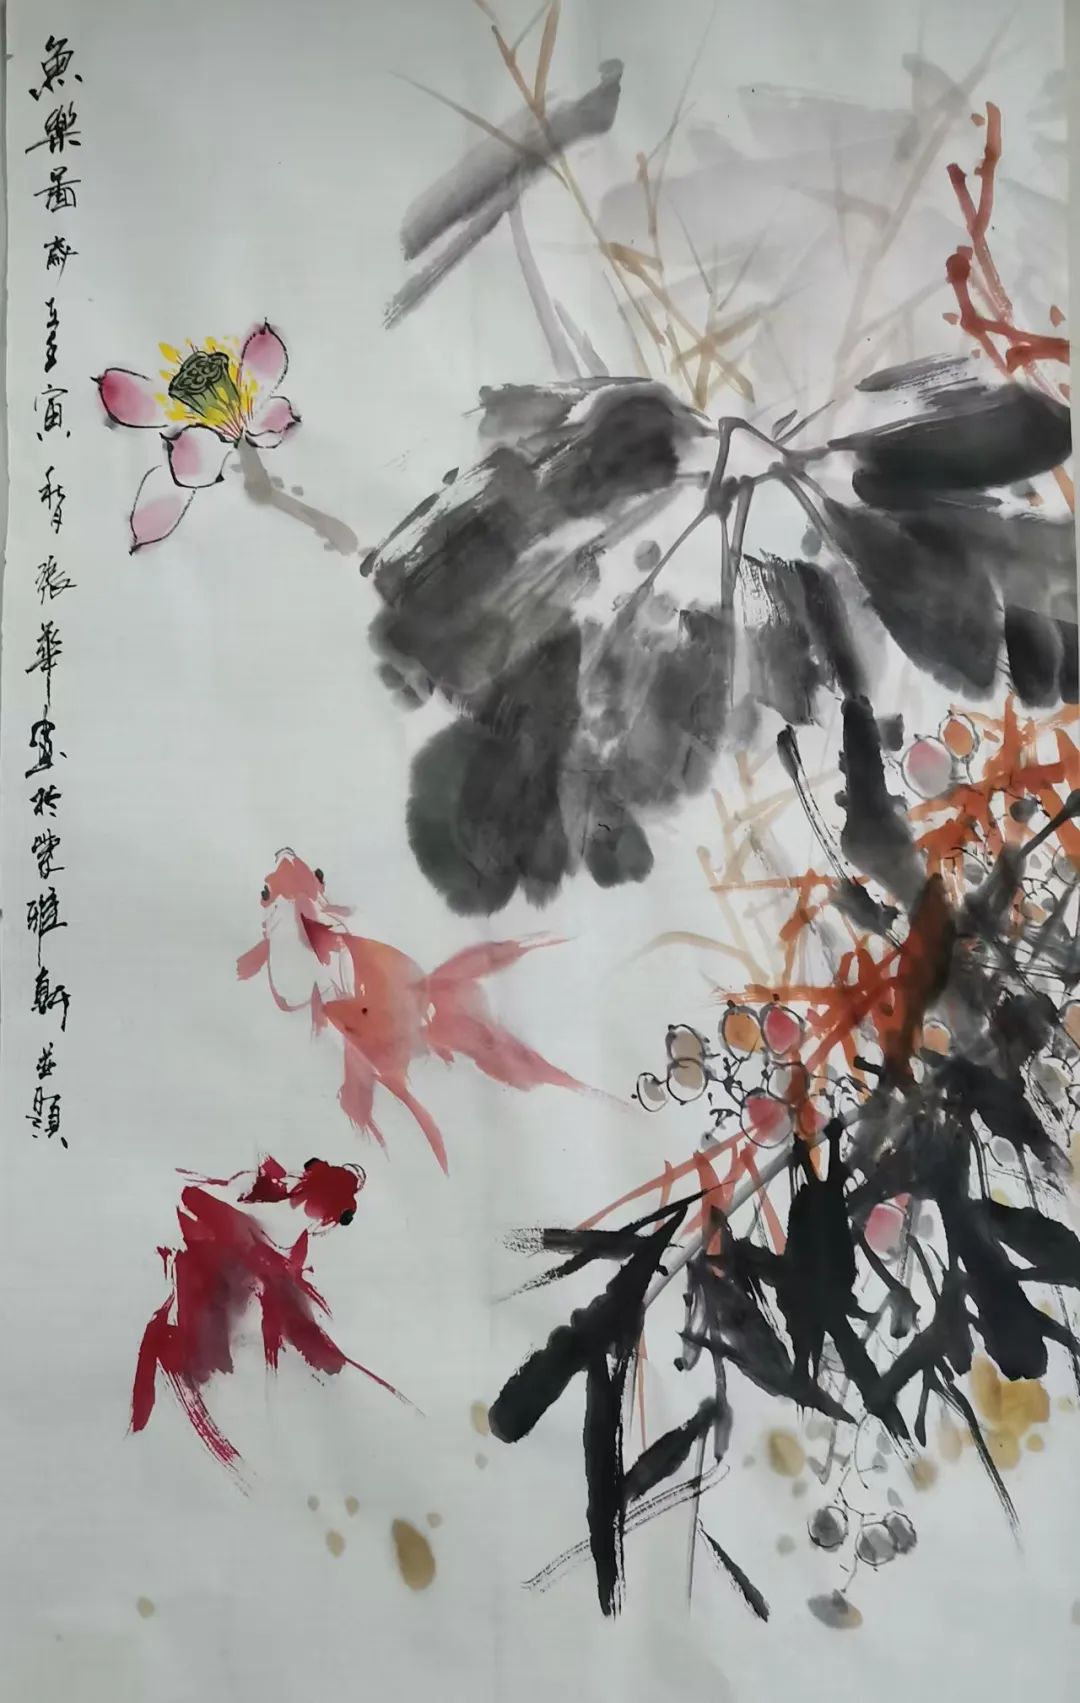 魚樂圖 歲壬寅秋月張華畫於紫雅軒並題